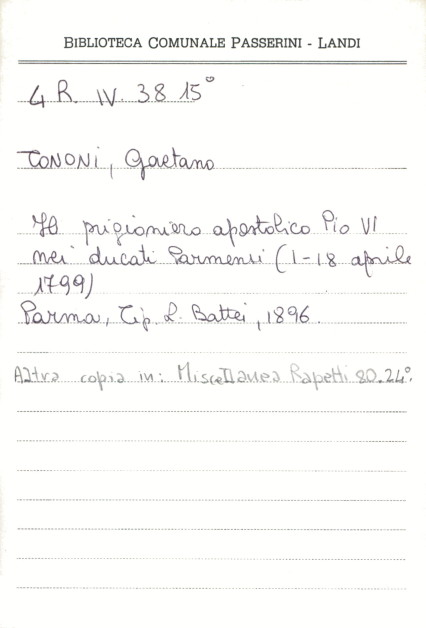 BIBLIOTECA COMUNALE PASSERINI - LANDI
4 R. IV. 38 15°
TONONI, Gaetano
Il prigioniero apostolico Pio VI
nei ducati Parmensi (1-18 aprile
1799)
Parma, Tip. L. Battei, 1896.
Altra copia in: Miscellanea Rapetti 80.24°.